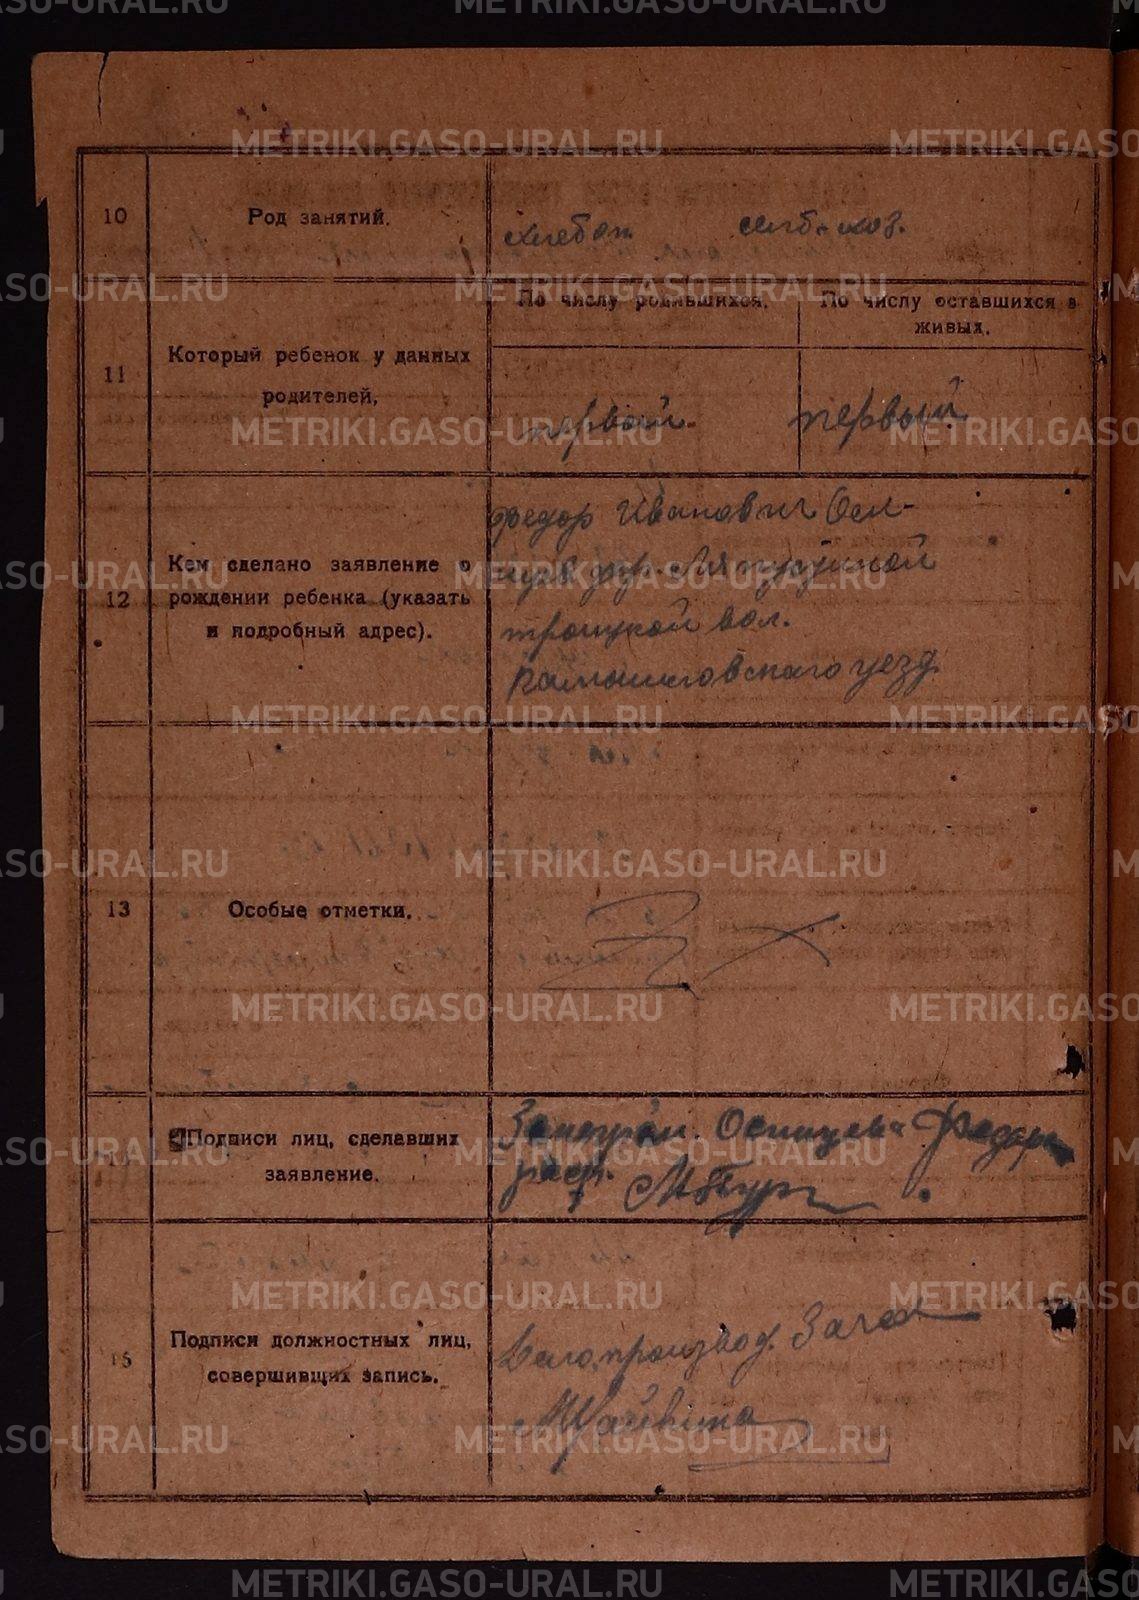 METRIKI.GASO-URAL.RU
10
Род занятий.
хлебоп. сельб-хоз.
11
Который ребенок у данных
родителей,
По числу родившихся.
По числу оставшихся в
живых.
первый
первый
12
Кем сделано заявление о
рождении ребенка (указать
и подробный адрес).
Федор Иванович Оси-
дер.
Троицкой вол.
Камышловскаго уезд.
13
Особые отметки.
14
Подписи лиц, сделавших
заявление.
Осинцева Федора
15
Подписи должностных лиц,
совершивщих запись.
Делопроизвод. Загса